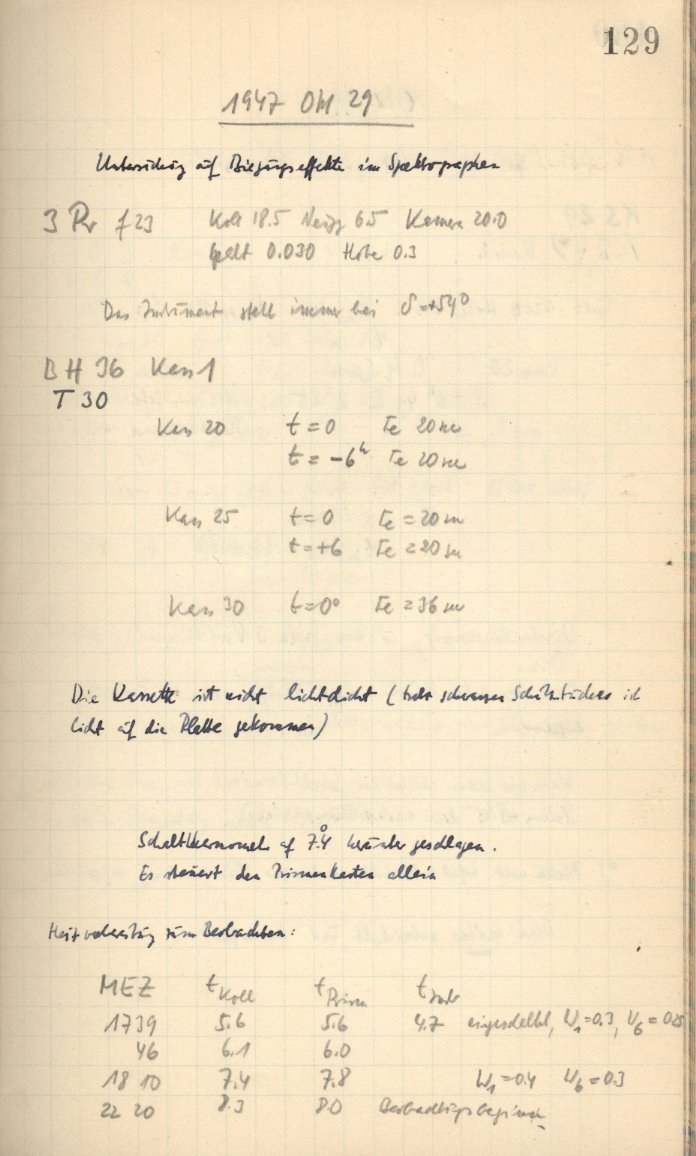 129
1947 Okt 29
Untersuchung auf Biegungseffekte im Spektrographen
3 Pr f 23 Koll 18.5 Neigg 6.5 Kamera 20.0
Spalt 0.030 Höhe 0.3
Das Instrument stellt immer bei δ=+54°
BH 36 Kass 1
T 30
Kass 20 t=0 Te 20m
t= -6h Te 20m
Kass 25 t=0 Te=20m
t=+6 Te=20m
Kass 30 t=0° Te=36m
Die Kassette ist nicht lichtdicht (trotz schwarzen Schutztuches ist
Licht auf die Platte gekommen)
auf 7.4° herunter geschlagen.
Es steuert den Prismenkasten allein
Heizvorbereitung zum Beobachten:
MEZ tKoll tPrism
1739 5.6 5.6 4.7 eingeschaltet, W1=0.3, W6=0.25
46 6.1 6.0
18 10 7.4 7.8 W1=0.4 W6=0.3
22 20 8.3 8.0 Beobachtungsbeginn